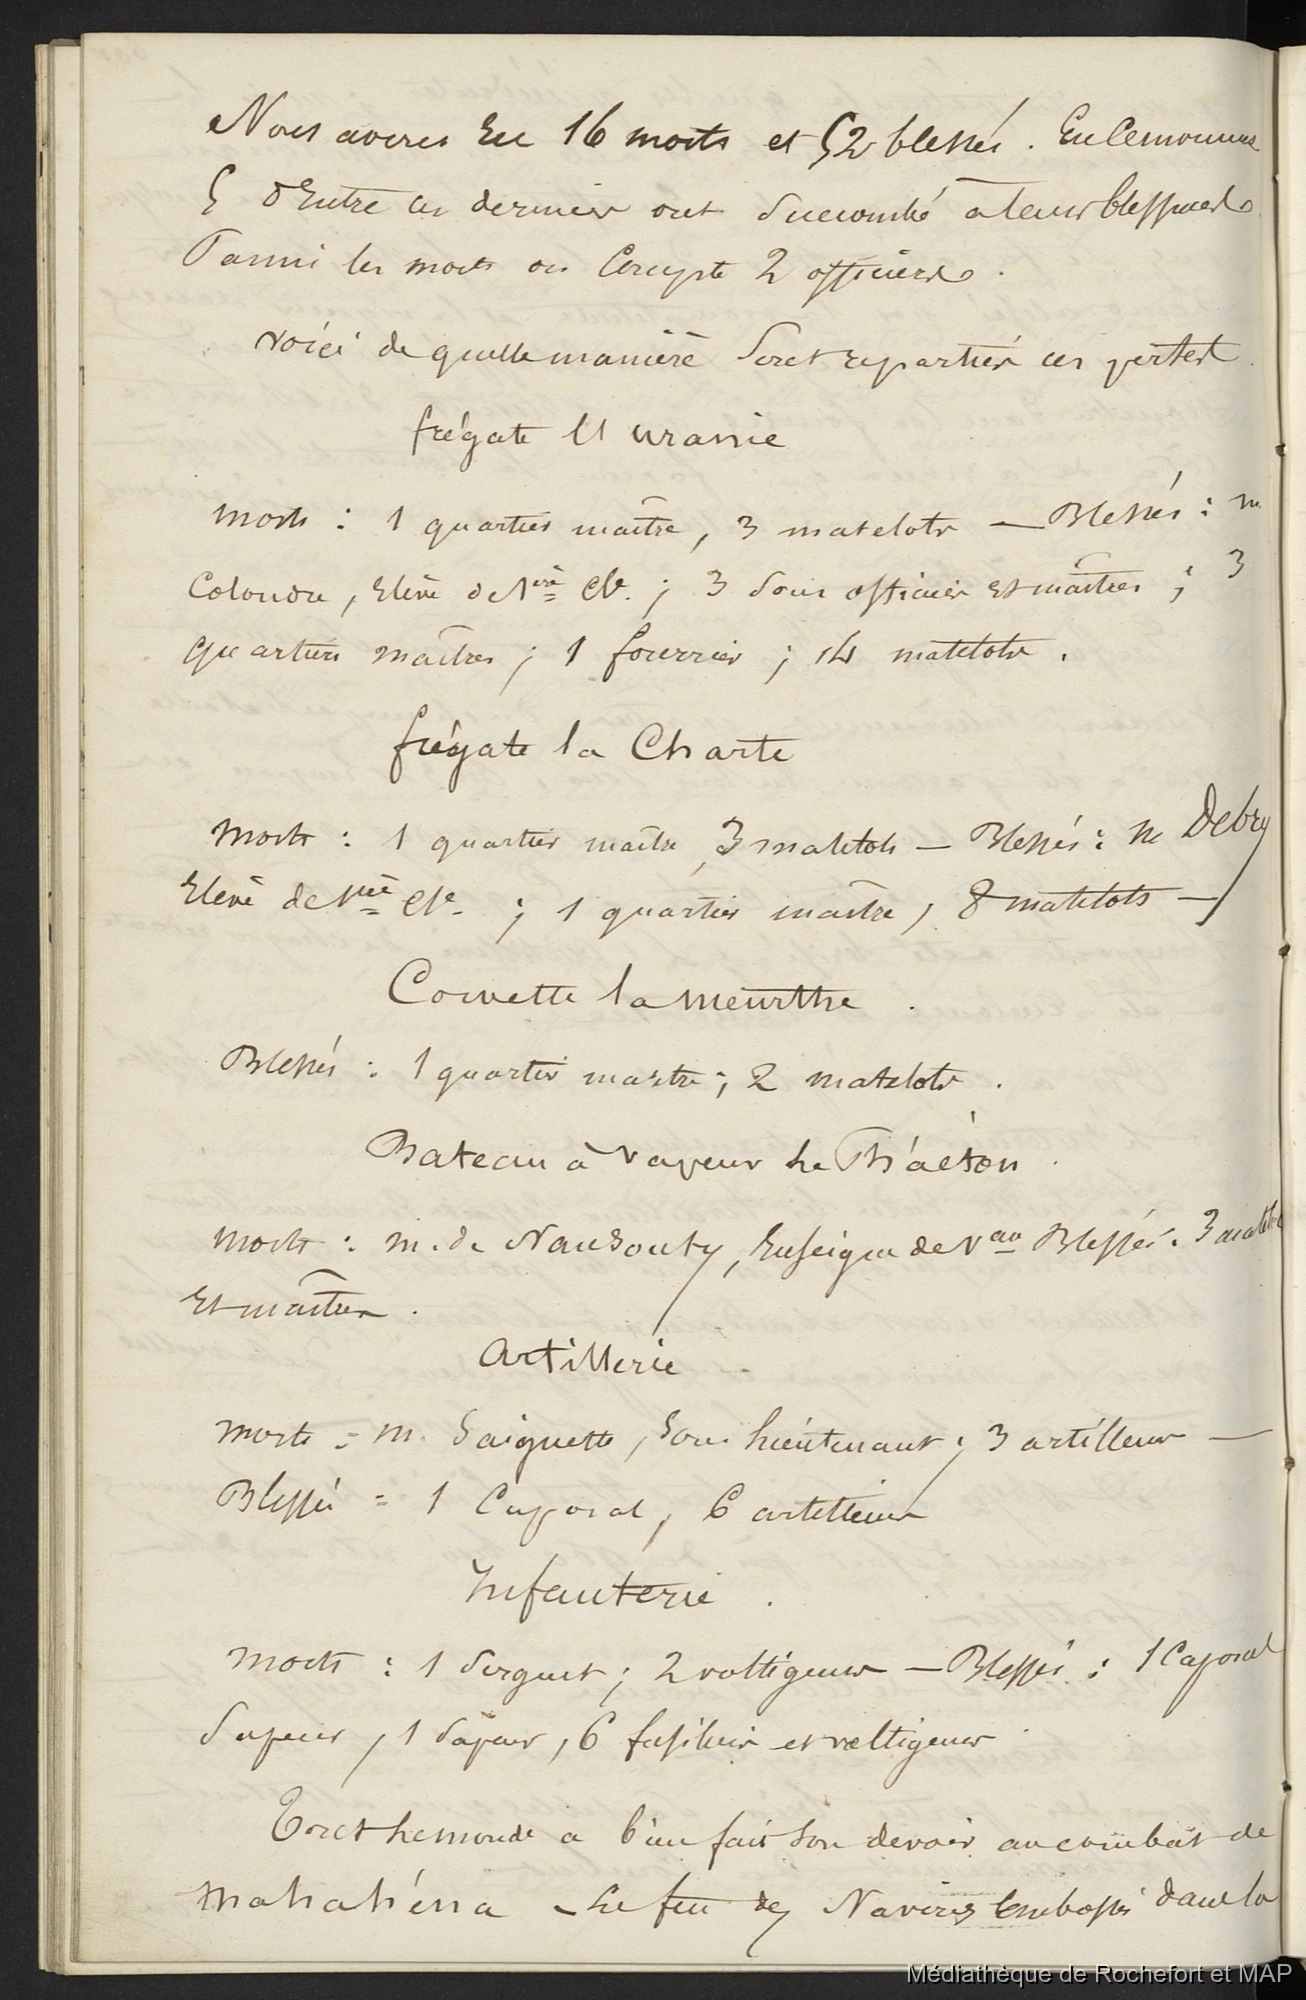 Nous avons Eu 16 morts et 52 blessés. En ce moment
5 d'Entre ces derniers ont succombé à leurs blessures
Parmi les morts on Compte 2 officiers.
voici de quelle manière Sont réparties ces pertes.
frégate l'Uranie
morts : 1 quartier maître, 3 matelots — Blessés : m.
Coloudre, Elève de 1ère Cle. ; 3 sous officiers et maîtres ; 3
quartiers maîtres ; 1 fourrier ; 14 matelots.
frégate la Charte
morts : 1 quartier maître, 3 matelots — Blessés : M Debry
Elève de 1ère Cle. ; 1 quartier maître, 8 matelots —
Corvette la meurthe.
Blessés : 1 quartier maître ; 2 matelots.
Bateau à vapeur Le Phaéton.
morts : m. de Nansouty, Enseigne de Vau Blessés : 3 matelots
Et maîtres.
Artillerie
morts = m. Seignette, Sous Lieutenant ; 3 artilleurs —
Blessés = 1 Caporal, 6 artilleurs
Infanterie.
morts : 1 Sergent ; 2 voltigeurs — Blessés : 1 Caporal
Sapeur, 1 Sapeur, 6 fusiliers et voltigeurs.
Tout le monde a bien fait son devoir au combat de
Mahahéna - Le feu des Navires Embossés dans la
Médiathèque de Rochefort et MAP